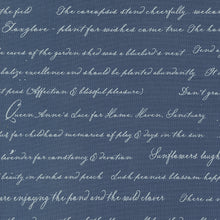 the field The careapsis stand cheerfully, welcom
Foxglove - plant for wishes come true The han
he eaves of the garden shed was a bluebird's nest Find
bolize excellence and should be planted abundantly It
t peas (Affection & blissful pleasure) Don't gra
Queen Anne's Lace for Home, Haven, Sanctuary
les for childhood memories of play & days in the sun
lavender for constancy & devotion Sunflowers laugh
beauty in pinks and peach Lush peonies blossom happ
are enjoying the pond and the wild clover There is